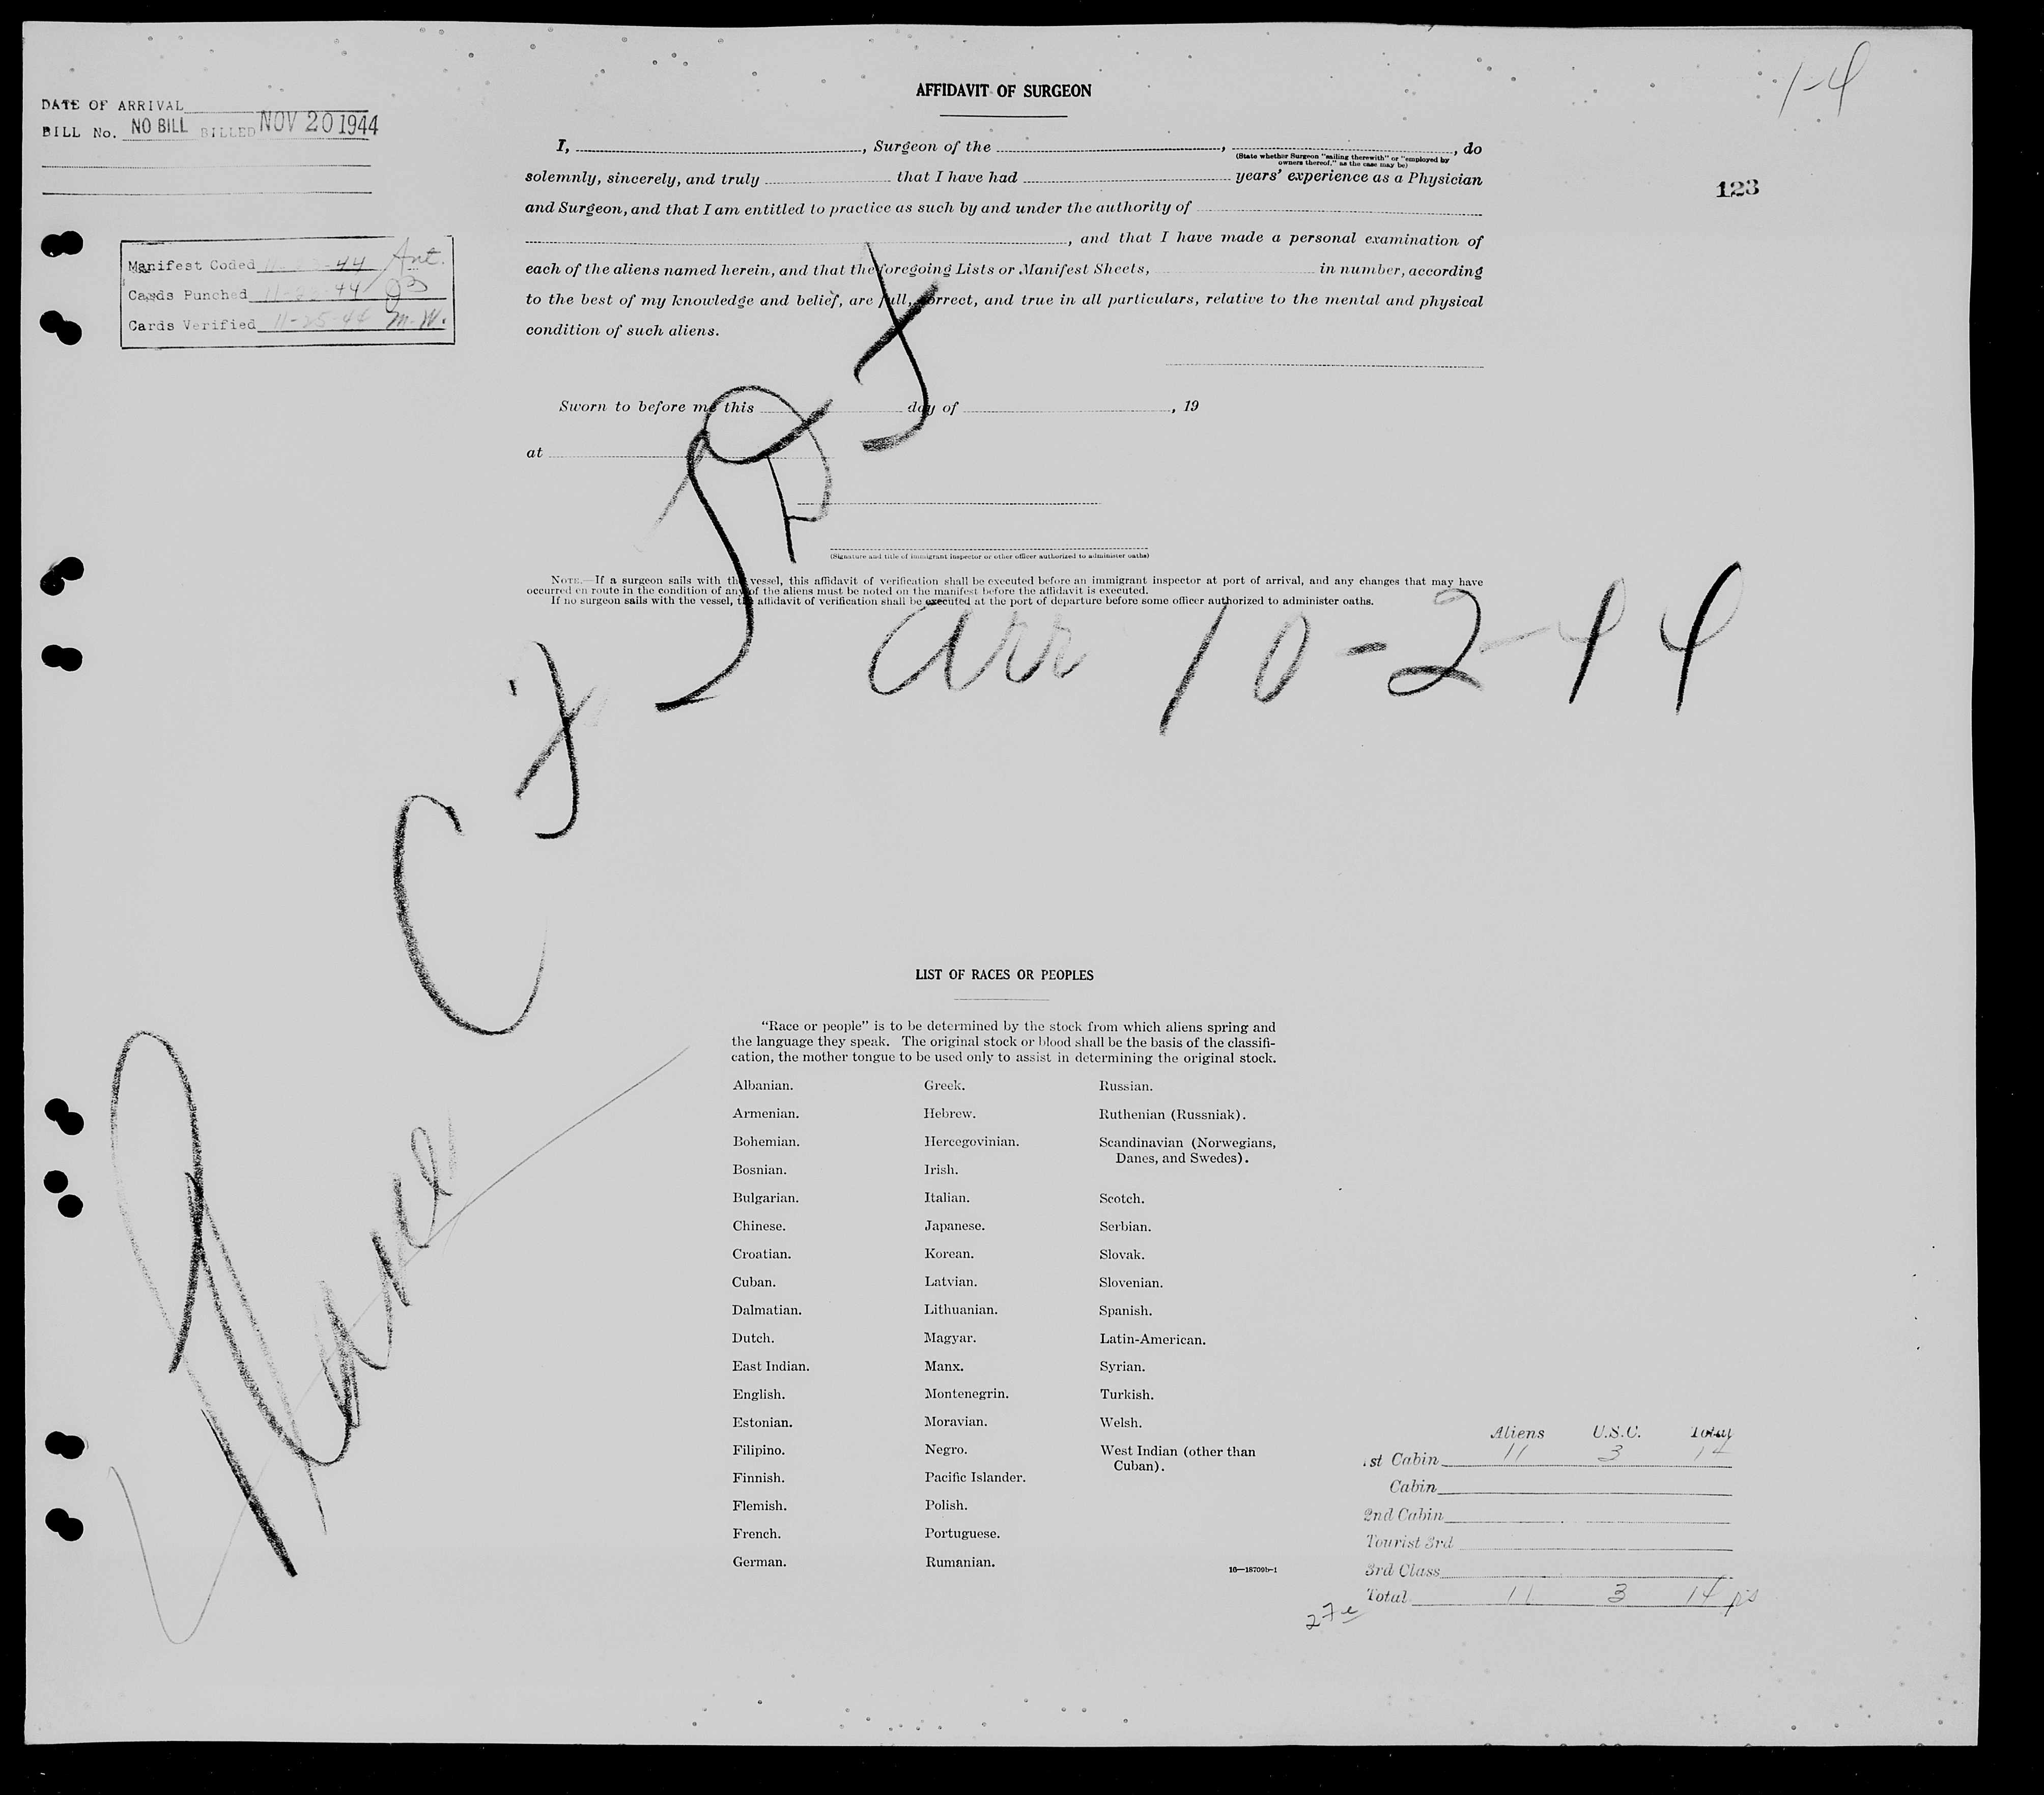 1-4
DATE OF ARRIVAL
BILL No. NO BILL BILLED NOV 20 1944
123
Manifest Coded 44 Ant.
Cards Punched 44
Cards Verified 11-25-44 M.W.
AFFIDAVIT OF SURGEON
I, , Surgeon of the , , do
(State whether Surgeon "sailing therewith" or "employed by
owners thereof," as the case may be)
solemnly, sincerely, and truly that I have had years' experience as a Physician
and Surgeon, and that I am entitled to practice as such by and under the authority of
, and that I have made a personal examination of
each of the aliens named herein, and that the foregoing Lists or Manifest Sheets, in number, according
to the best of my knowledge and belief, are full, correct, and true in all particulars, relative to the mental and physical
condition of such aliens.
Sworn to before me this day of , 19
at
(Signature and title of immigrant inspector or other officer authorized to administer oaths)
NOTE.—If a surgeon sails with the vessel, this affidavit of verification shall be executed before an immigrant inspector at port of arrival, and any changes that may have
occurred en route in the condition of any of the aliens must be noted on the manifest before the affidavit is executed.
If no surgeon sails with the vessel, the affidavit of verification shall be executed at the port of departure before some officer authorized to administer oaths.
arr 10-2-44
Plane
LIST OF RACES OR PEOPLES
"Race or people" is to be determined by the stock from which aliens spring and
the language they speak. The original stock or blood shall be the basis of the classifi-
cation, the mother tongue to be used only to assist in determining the original stock.
Albanian.
Armenian.
Bohemian.
Bosnian.
Bulgarian.
Chinese.
Croatian.
Cuban.
Dalmatian.
Dutch.
East Indian.
English.
Estonian.
Filipino.
Finnish.
Flemish.
French.
German.
Greek.
Hebrew.
Hercegovinian.
Irish.
Italian.
Japanese.
Korean.
Latvian.
Lithuanian.
Magyar.
Manx.
Montenegrin.
Moravian.
Negro.
Pacific Islander.
Polish.
Portuguese.
Rumanian.
Russian.
Ruthenian (Russniak).
Scandinavian (Norwegians,
Danes, and Swedes).
Scotch.
Serbian.
Slovak.
Slovenian.
Spanish.
Latin-American.
Syrian.
Turkish.
Welsh.
West Indian (other than
Cuban).
16—18709b-1
Aliens U.S.C. Total
1st Cabin 11 3 14
Cabin
2nd Cabin
Tourist 3rd
3rd Class
Total 11 3 14